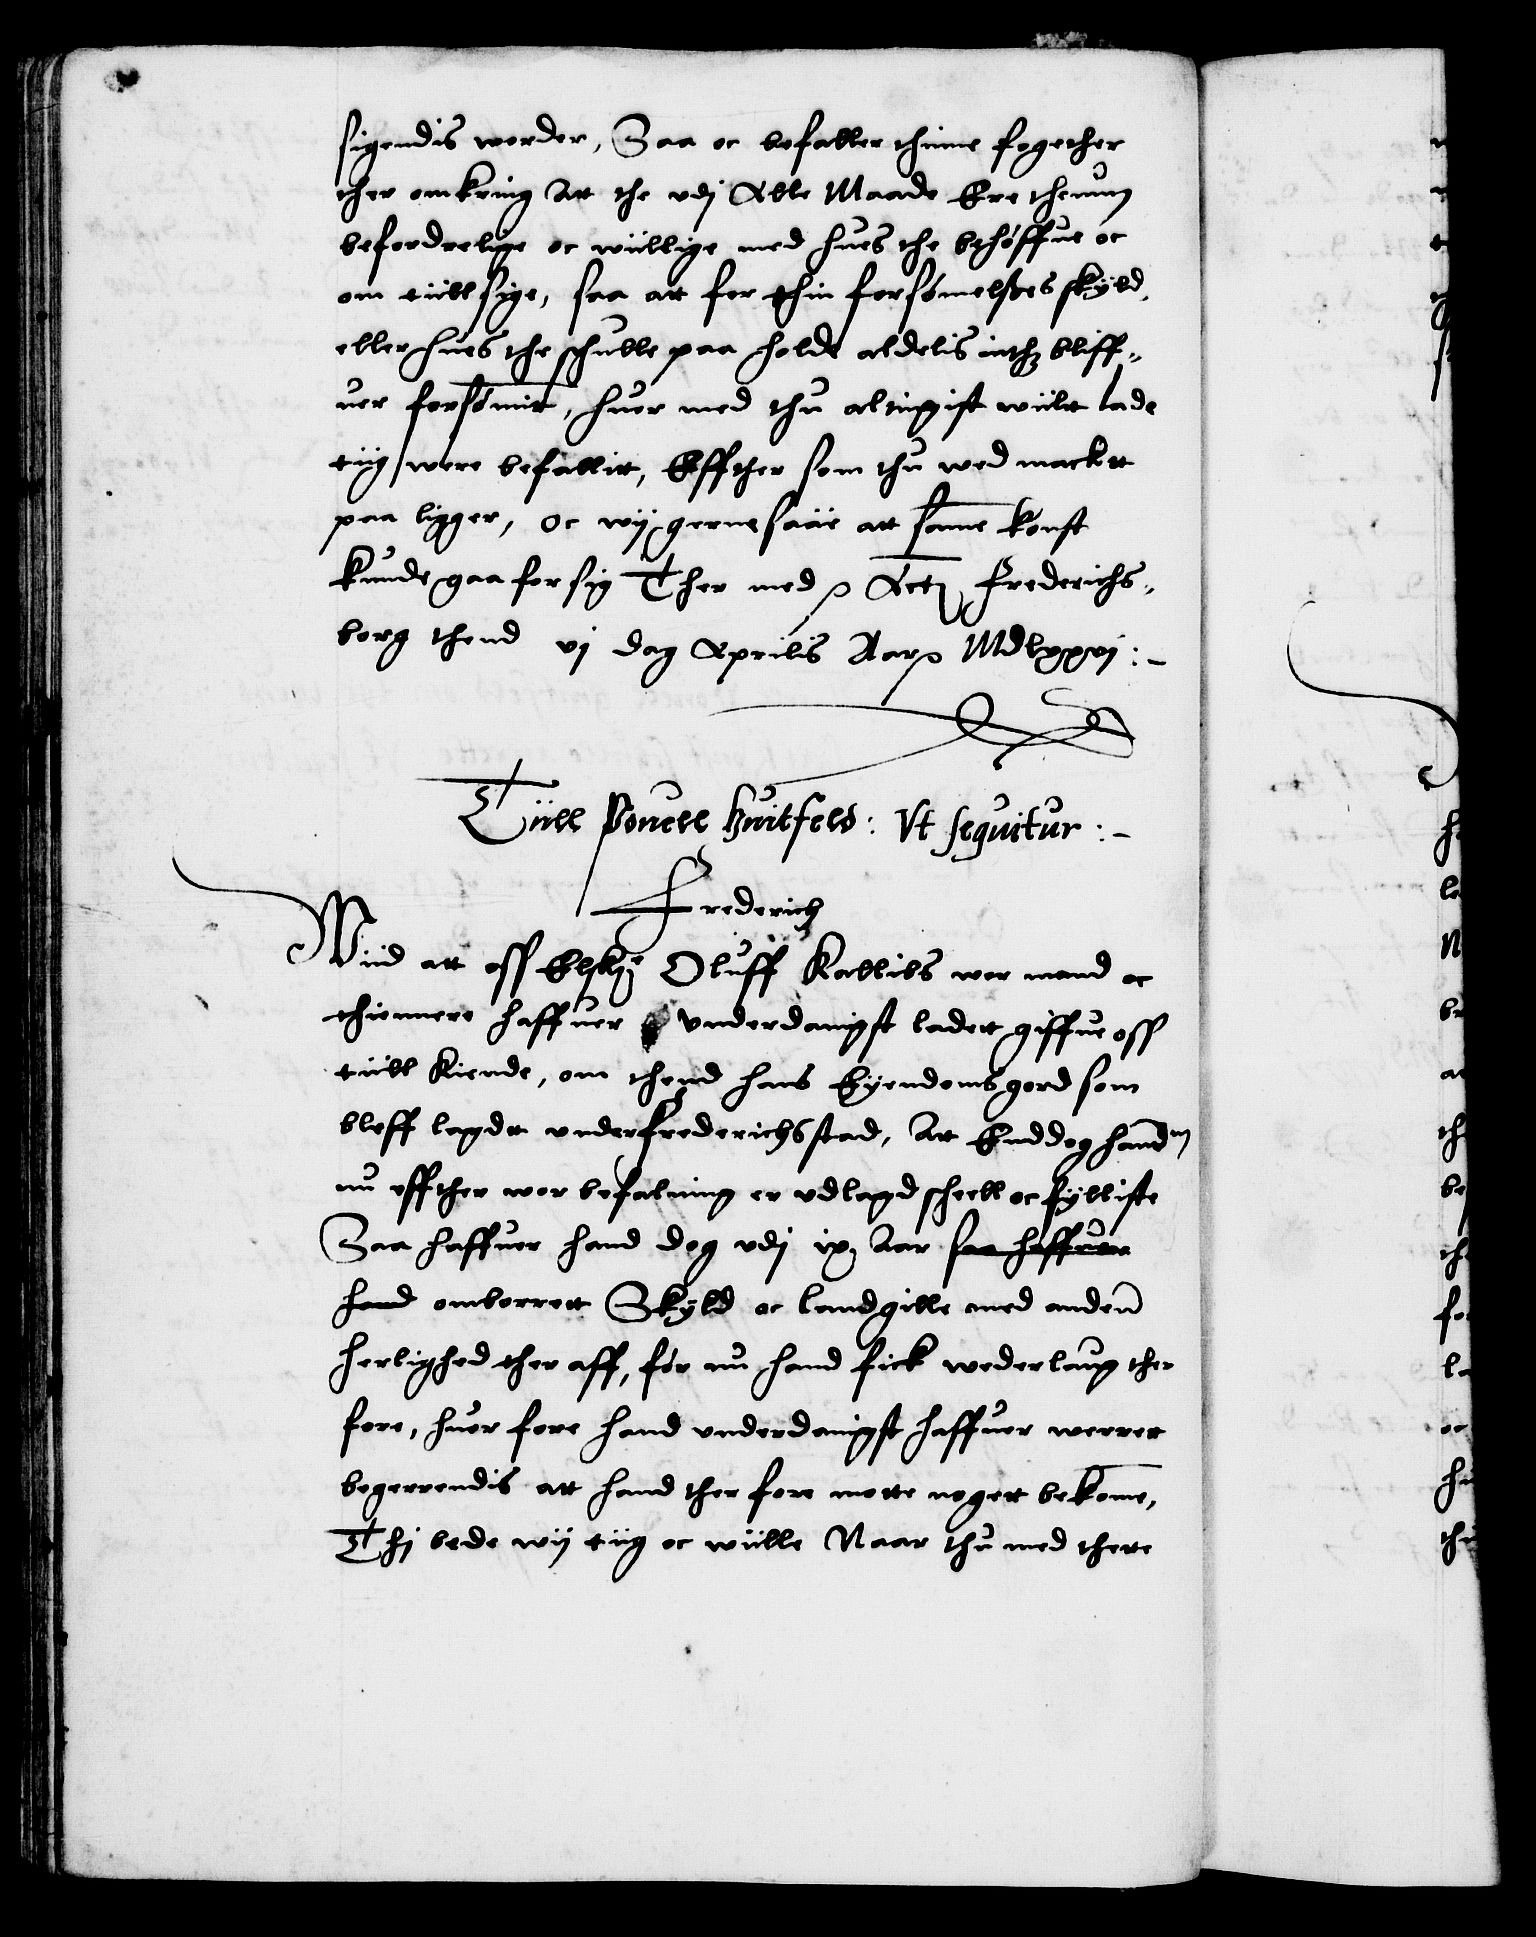 sigendis worder, Saa oc befaller thinne fogether
ther omkring Att the vdj Alle Maade Ere thenum
befordrelige oc wiillige med hues the behøffue oc
om tiill sige, saa att for thin forsømelsses skyld,
eller hues the schulle paa holde aldelis inthz bliff-
uer forsømit, huor med thu altingist wiilt lade
tiig were befallitt, Effther som thu wed macktt
paa ligger, oc wij gerne saae att samme konst
kunde gaa for sig Ther med p Actz Frederichs-
borg thend vj dag Aprilis Aar p Mdlxxvj :-
Tiill Pouell Huitfeld: Vt sequitur :-
Frederich
Wiid att oss Elskz Oluff Kallils wor mand oc
thiennere haffuer vnderdanigst ladett giffue oss
tiill Kiende, om thend hans Eyendoms gord som
bleff lagdt vnder frederichsstad, Att Enddog hand
nu effther wor befalning er vdlagd scheell oc fylliste
Saa haffuer hand dog vdj ix Aar saa haffuer
hand omborrett Skyld oc landgille med anden
herlighed ther aff, før nu hand fick wederlaug ther
fore, huor fore hand vnderdanigst haffuer werret
begerrendis att hand ther fore motte nogett bekome,
Thj bede wij tiig oc wiille Naar thu med there